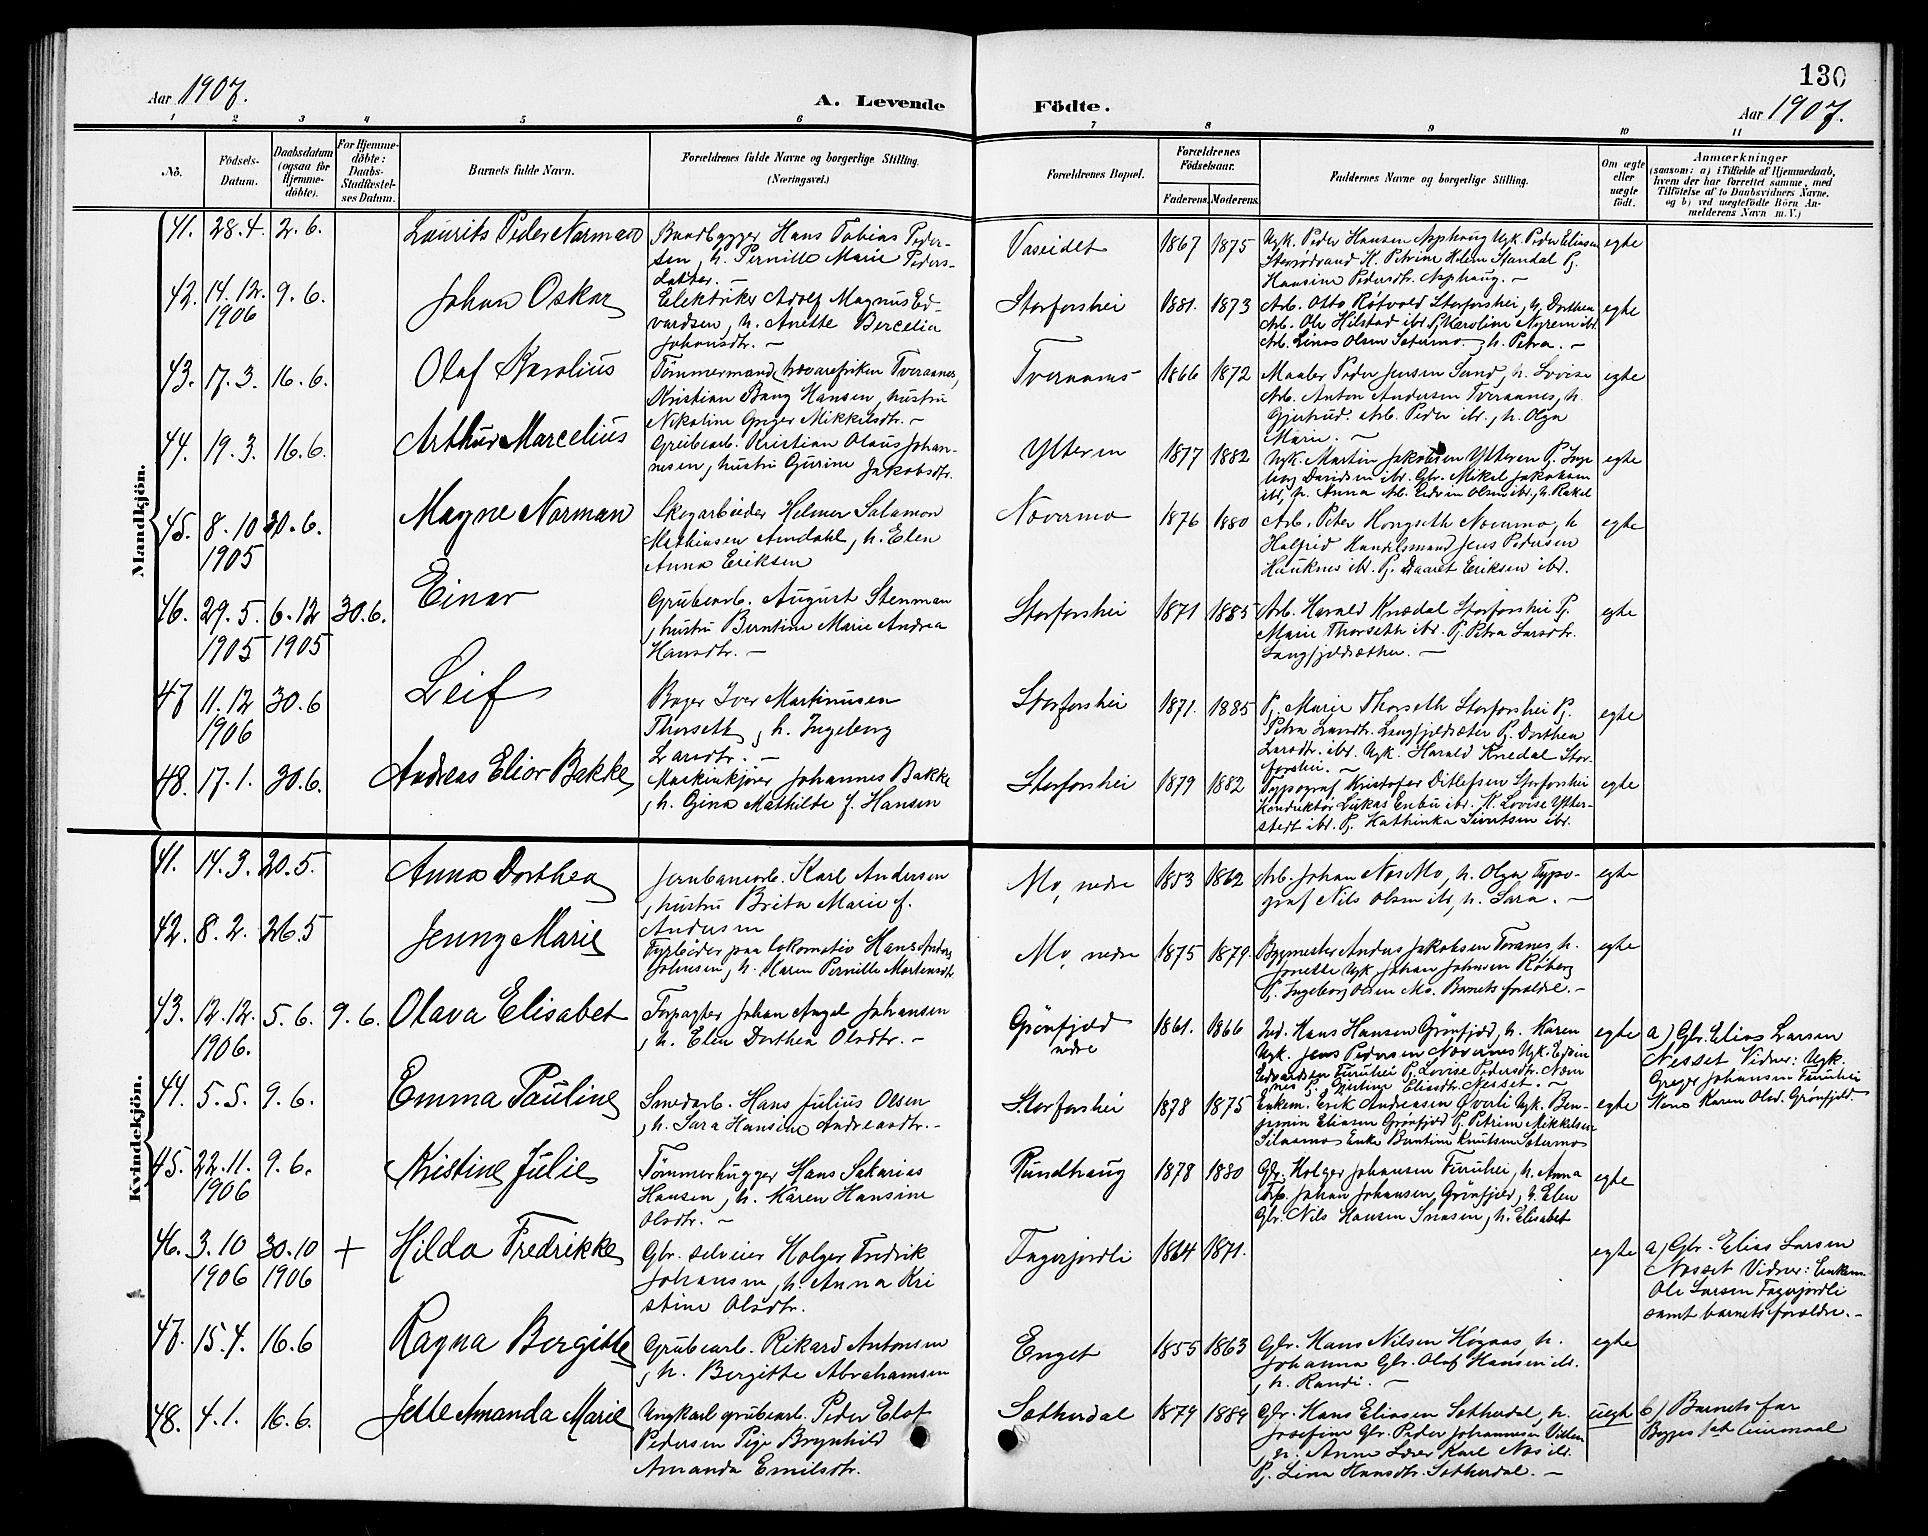 130
Aar 1907.
A. Levende
Födte.
Aar 1907.
1 2 3 4 5 6 7 8 9 10 11
No.
Födsels-
Datum.
Daabsdatum
(ogsaa for
Hjemme-
döbte).
For Hjemme-
döbte:
Daabs-
Stadfæstel-
ses Datum.
Barnets fulde Navn.
Forældrenes fulde Navne og borgerlige Stilling.
(Næringsvei.)
Forældrenes Bopæl.
Forældrenes
Födselsaar.
Faderens. Moderens.
Faddernes Navne og borgerlige Stilling.
Om ægte
eller
uægte
födt.
Anmærkninger
(saasom: a) i Tilfælde af Hjemmedaab,
hvem der har forrettet samme, med
Tilföielse af to Daabsvidners Navne.
og b) ved uægtefödte Börn An-
melderens Navn m. V.)
Mandkjön.
41. 28.4. 2.6. Laurits Peder Norman
Baadbygger Hans Tobias Peder-
sen, h. Pernille Marie Peders-
datter. —
Vaseidet 1867 1875
Ugk. Peder Hansen Asphaug Ugk. Peder Eliasen
Hansine Pedersdtr. Asphaug. —
egte
42. 14.12. 9.6. Johan Oskar
1906
Elektriker Adolf Magnus Ed-
vardsen, h. Anette Bercelia
Johansdtr. —
Storforshei 1881. 1873
Arb. Otto Røtvold Storforshei, h. Dorthea
Arb. Ole Hilstad ibr. Pj. Karoline Nyrem ibr.
Arb. Linos Olsen Sætermo, h. Petra. —
egte
43. 17.3. 16.6. Olaf Karolius
Tømmermand Tveraanes,
Kristian Bang Hansen, hustru
Nikoline Greger Mikkelsdtr. —
Tveraanes 1866 1872
Maaler Peder Jensen Sund, h. Lovise
Arb. Anton Andersen Tveraanes, h.
Gjertrud. Arb. Peder ibr., h. Olga
Marie. —
egte
44. 19.3. 16.6. Arthur Marcelius
Grubearb. Kristian Olaus Johan-
nesen, hustru Gurine Jakobsdtr.
Ytteren 1877 1882
Ugk. Martin Jakobsen Ytteren Pj. Inge-
borg Davidsen ibr. Gbr. Mikal Jakobsen
ibr, h. Anna Arb. Edvin Olsen ibr., h. Rakel
egte
45. 8.10 30.6. Magne Norman
1905
Skogarbeider Helmer Salamon
Mathiasen Amdahl, h. Elen
Anna Eriksen
Nævermo 1876 1880
Arb. Peter Hongseth Nævermo, h
Halfrid Handelsmand Jens Pedersen
Hauknes ibr. Pj. Daaret Eriksen ibr.
egte
46. 29.5. 6.12 30.6. Einar
1905 1905
Grubearb. August Stenman
, hustru Berntine Marie Andrea
Hansdtr. —
Storforshei 1871 1885
Arb. Harald Knædal Storforshei Pj.
Marie Thorseth ibr. Pj. Petra Larsdtr.
Langfjeldsæther. —
egte
47 11.12 30.6 Leif
1906
Bager Iver Martinusen
Thorseth, h. Ingeborg
Larsdtr. —
Storforshei 1871. 1885
Pj. Marie Thorseth Storforshei Pj.
Petra Larsdtr. Langfjeldsæter Pj. Dorthea
Larsdtr. ibr. Ugk. Harald Knedal Stor-
forshei. —
egte
48. 17.1. 30.6. Andreas Elior Bakke
Maskinkjører Johannes Bakke
, h. Gina Mathilde f. Hansen
Storforshei 1879 1882
Typograf Kristofer Ditlefsen Storforshei
Konduktør Lukas Enbu ibr. K. Lovise Ytter-
stedt ibr. Pj. Kathinka Sivertsen ibr.
egte
Kvindekjön.
41. 14.3. 20.5. Anna Dorthea
Jernbanearb. Karl Andersen
, hustru Brita Marie f.
Andersen
Mo, nedre 1853 1862
Arb. Johan Næs Mo, h. Olga Typo-
graf Nils Olsen ibr, h. Sara. —
egte
42. 8.2. 26.5 Jenny Marie
Fyrbøder paa lokomotiv Hans Anders
Johnsen, h. Karen Pernille Mortensdtr.
Mo, nedre 1875 1879.
Bygmester Anders Jakobsen Toranes, h.
Jonette Ugk. Johan Johnsen Røberg
Pj. Ingeborg Olsen Mo. Barnets forældre. —
egte
43. 12.12. 5.6. 9.6. Olava Elisabet
1906.
Forpagter Johan Angel Johansen
, h. Elen Dorthea Olsdtr. —
Grønfjeld
nedre
1861. 1866
Ind. Hans Hansen Grønfjeld, h. Karen
Ugk. Jens Pedersen Nævernes Ugk. Edvin
Edvardsen Furuhei Pj. Lovise Pedersdtr. Næver-
nes Pj. Gjertine Eliasdtr. Nesset. —
egte
a) Gbr. Elias Larsen
Nesset Vidner: Ugk.
Greger Johansen Furuhei
Kone Karen Olsd. Grønfjeld.
44. 5.5. 9.6. Emma Pauline
Smedarb. Hans Julius Olsen
, h. Sara Hansine Andreasdtr. —
Storforshei 1878 1875
Enkem. Erik Andreasen Øverli Ugk. Ben-
jamin Eliasen Grønfjeld Pj. Petrine Mikkelsen
Silaamo Enke Berntine Knutsen Sætermo
egte
45. 22.11. 9.6. Kristine Julie
1906
Tømmerhugger Hans Sakarias
Hansen, h. Karen Hansine
Olsdtr. —
Rundhaug 1878 1880
Gbr. Holger Johansen Furuhei, h. Anna
Frp. Johan Johansen, Grønfjeld, h. Elen
Gbr. Nils Hansen Snasen, h. Elisabet
egte
46. 3.10 30.10 + Hilda Fredrikke
1906 1906
Gbr. selveier Holger Fredrik
Johansen, h. Anna Kri
stine Olsdtr.
Fagerjordli 1864 1871.
egte
a) Gbr. Elias Larsen
Nesset Vidner: Enkem.
Ole Larsen Fagerjordli
samt barnets forældre. —
47. 15.4. 16.6 Ragna Bergitte
Grubearb. Rikard Antonsen
, h. Bergitte Abrahamsen
Enget 1855 1863
Gbr. Hans Nilsen Høgaas, h.
Johanna Gbr. Olaf Hansen ibr.
, h. Randi. —
egte
48. 4.1. 16.6. Jelle Amanda Marie
Ungkarl grubearb. Peder Elof
Pedersen Pige Brynhild
Amanda Emilsdtr.
Sætherdal 1879 1889
Gbr. Hans Eliasen Sætherdal, h.
Josefine Gbr. Peder Johannesen
h. Anne Lærer Karl Næs ibr.
Pj. Lina Hansdtr. Sætherdal. —
uegte
b) Barnets far
Begges 1ste leiermaal